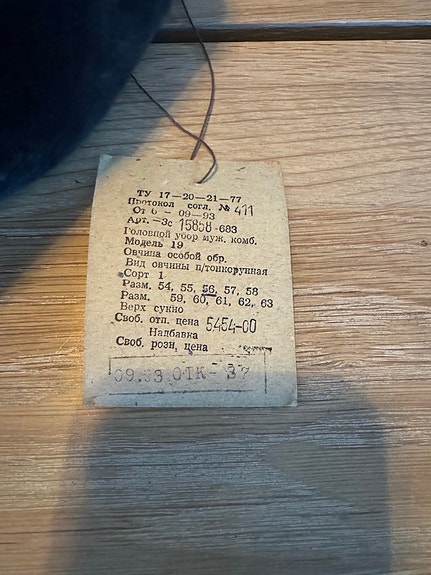 ТУ 17—20—21—77
Протокол согл. № 411
От 6 — 09—93
Арт. —3с 15858-683
Головной убор муж. комб.
Модель 19
Овчина особой обр.
Вид овчины п/тонкорунная
Сорт 1
Разм. 54, 55, 56, 57, 58
Разм. 59, 60, 61, 62, 63
Верх сукно
Своб. отп. цена 5454-00
Надбавка
Своб. розн. цена
09.93 ОТК-37